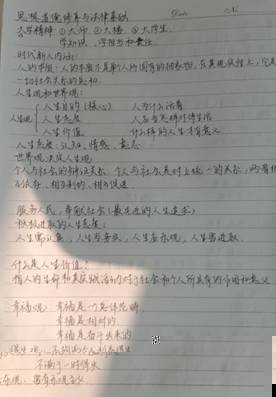 思想道德修养与法律基础
Date No
大学精神 ①大师 ②大楼 ③大学生
学知识、学担当和责任
时代新人内涵：
人的本质：人的本质不是单个人所固有的抽象物，在其现实性上，它是
一切社会关系的总和
人生观和世界观：
人生目的（核心） 人为什么活着
人生观 人生态度 人应当怎样对待生活
人生价值 什么样的人生才有意义
人生态度：认知、情感、意志
世界观决定人生观
个人与社会的辩证关系，个人与社会是对立统一的关系，两者相
互依存、相互制约、相互促进
服务人民，奉献社会（最先进的人生追求）
积极进取的人生态度：
人生需认真，人生当务实，人生应乐观，人生需进取
什么是人生价值？
指人的生命和其实践活动对于社会和个人所具有的作用和意义
幸福观：幸福是一个总体范畴
幸福是相对的
幸福是奋斗出来的
不满于一时得失